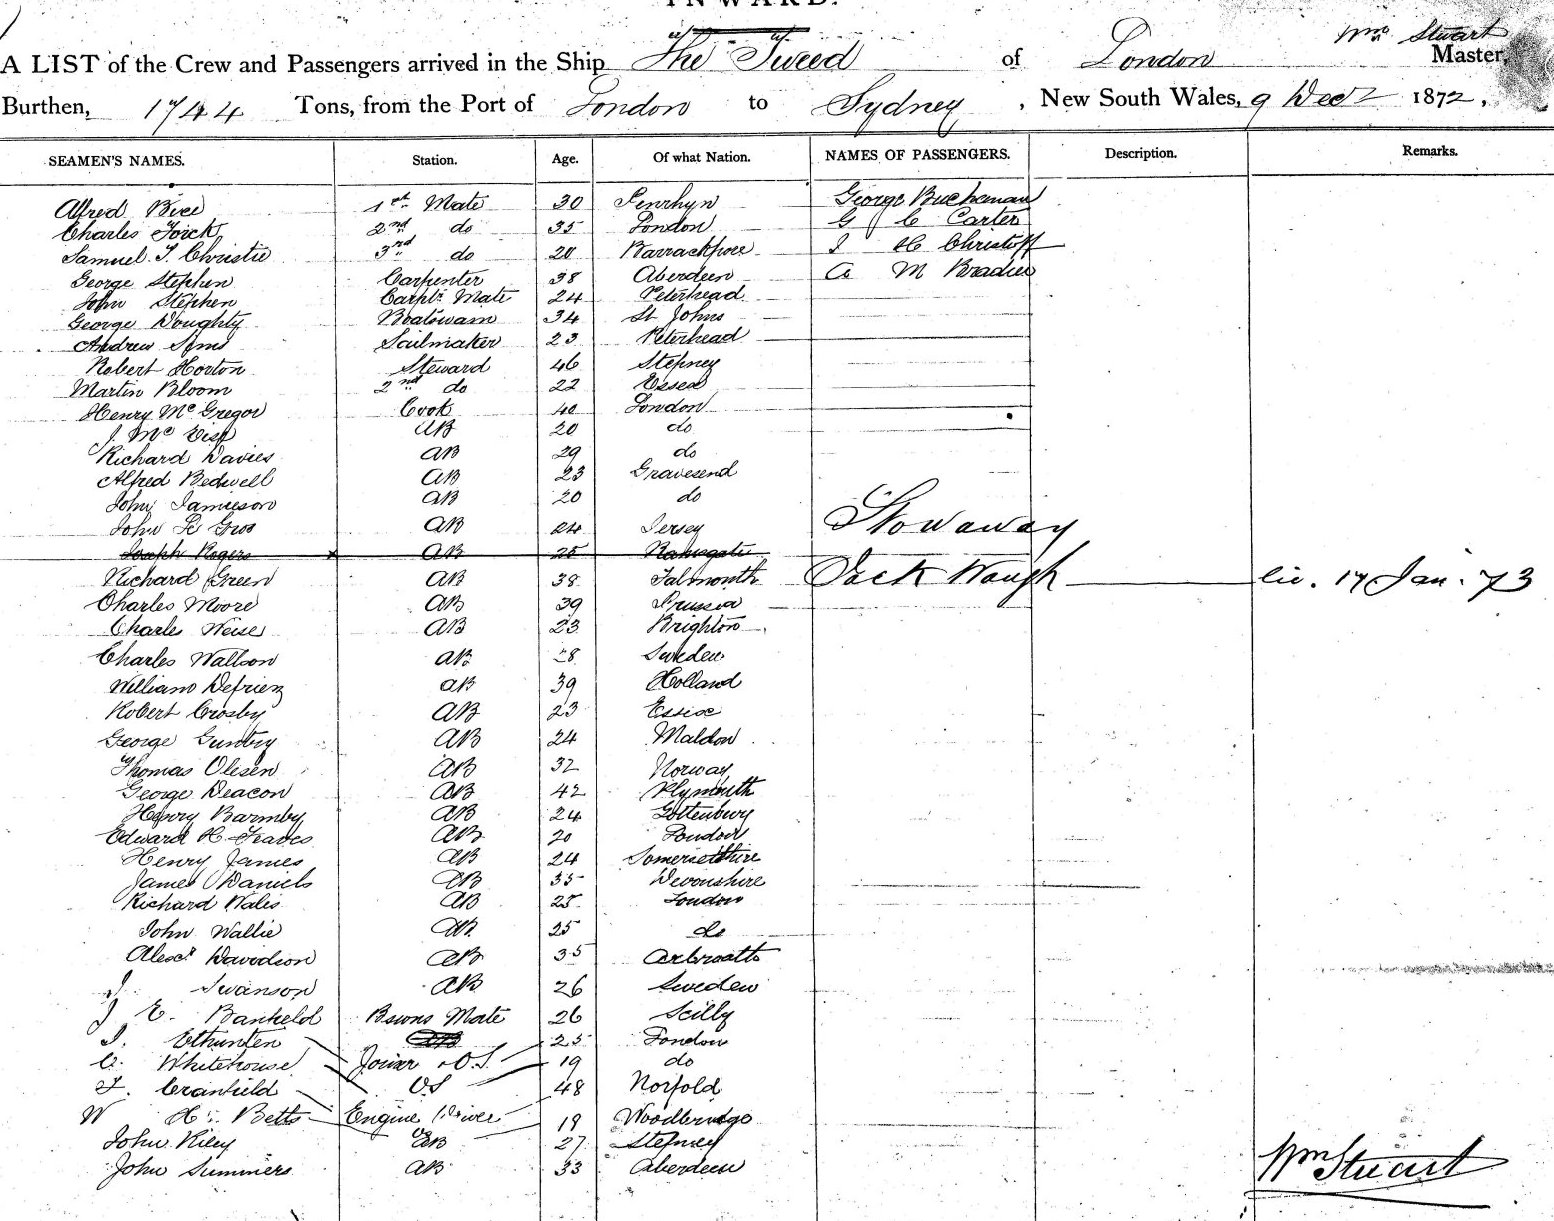 INWARD.
Wm Stuart
A LIST of the Crew and Passengers arrived in the Ship "The Tweed" of London Master,
Burthen, 1744 Tons, from the Port of London to Sydney, New South Wales, 9 Decr 1872,
SEAMEN'S NAMES. Station. Age. Of what Nation. NAMES OF PASSENGERS. Description. Remarks.
Alfred Bice 1st Mate 30 Penrhyn George Buchanan
Charles Torck 2nd do 35 London G C Carter
Samuel T. Christie 3rd do 20 Barrackpore J H Christoff
George Stephen Carpenter 38 Aberdeen A M Bradier
John Stephen Carptr Mate 24 Peterhead
George Doughty Boatswain 34 St Johns
Andrew Sims Sailmaker 23 Peterhead
Robert Horton Steward 46 Stepney
Martin Bloom 2nd do 22 Essex
Henry McGregor Cook 40 London
J. Mc AB 20 do
Richard Davies AB 29 do
Alfred Bedwell AB 23 Gravesend
John Jamieson AB 20 do
John Le Gros AB 24 Jersey Stowaway
Joseph Rogers x AB 25 Ramsgate
Richard Green AB 38 Falmouth Jack Waugh lie. 17 Jan. 73
Charles Moore AB 39 Prussia
Charles Weise AB 23 Brighton
Charles Wallson AB 28 Sweden
William Defriez AB 39 Holland
Robert Crosby AB 23 Essex
George Guntry AB 24 Maldon
Thomas Olesen AB 32 Norway
George Deacon AB 42 Plymouth
Henry Barmby AB 24 Gottenburg
Edward H Graves AB 20 London
Henry James AB 24 Somersetshire
James Daniels AB 35 Devonshire
Richard Wales AB 25 London
John Wallie AB 25 do
Alexr Davidson AB 35 Arbroath
J. Swanson AB 26 Sweden
J E. Banfield Bswns Mate 26 Scilly
J. Ethunten AB 25 London
C. Whitehouse Joiner & O.S. 19 do
F. Cranfield OS 48 Norfold
W H. Betts Engine Driver 19 Woodbridge
John Riley AB 27 Stepney
John Summers AB 33 Aberdeen
Wm Stuart